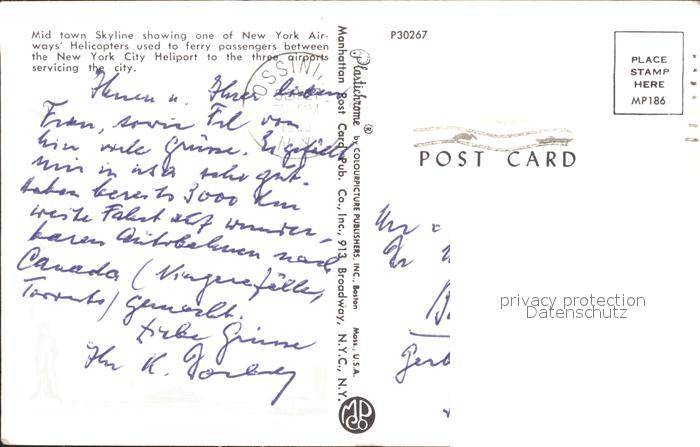 Mid town Skyline showing one of New York Air-
ways' Helicopters used to ferry passengers between
the New York City Heliport to the three airports
servicing the city.
Ihnen u. Ihrer lieben
Frau, sowie Frl von
hier viele Grüsse. Es gefällt
mir in USA sehr gut.
Haben bereits 3000 km
weite Fahrt auf wunder-
baren Autobahnen nach
Canada (Niagarafälle,
Toronto) gemacht.
Liebe Grüsse
Ihr K.
OSSINI
Plastichrome ® by COLOURPICTURE PUBLISHERS, INC., Boston Mass., U.S.A.
Manhattan Post Card Pub. Co., Inc., 913 Broadway, N.Y.C., N.Y.
MPC
P30267
PLACE
STAMP
HERE
MP186
POST CARD
privacy protection
Datenschutz